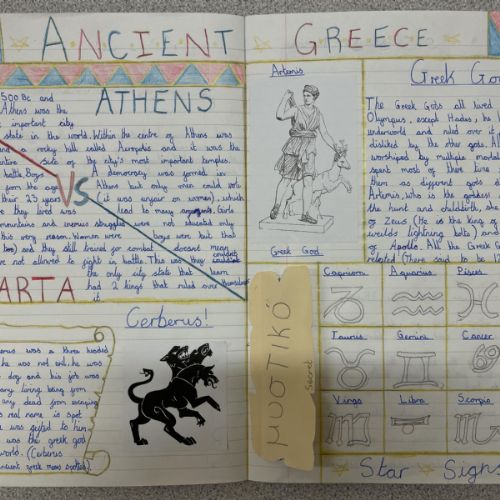 ANCIENT GREECE
ATHENS
500 Bc and
Athens was the
important city
state in the world. Within the centre of Athens was
a rocky hill called Acropolis and it was the
site of the city's most important temples.
battle. Boys A democracy was formed in
from the age Athens but only men could vote
their 23 years (it was unfair on women), which
they lived was lead to many arguments. Girls
mountains and enemies struggles were not educated only
this very women. Women were boys were. but that
too) and they still trained for combat doesnt mean
not allowed to fight in battle. This was they couldnt
the only city state that learn
had 2 kings that ruled over themselves
it.
VS
ARTA
Cerberus!
was a three headed
he was not evil, he was
dog and his job was
any living being from
any dead from escaping
real name is spot
was gifted to him
was the greek god
world. (Cerberus
ancient greek means spotted).
Artemis
Greek God
μυστικό
secret
Greek Go
The Greek Gods all lived
Olympus, except Hades, he
underworld and ruled over it
disliked by the other gods. A
worshiped by multiple mortals
spent most of there time
them as different gods
Artemis, who is the goddess
the hunt and childbirth, she
of Zeus (He is the king of
weilds lightning bolts) and
of Apollo. All the Greek
related (There said to be 12
Capricorn Aquarius Pisces
Taurus Gemini Cancer
Virgo Libra Scorpio
Star Signs